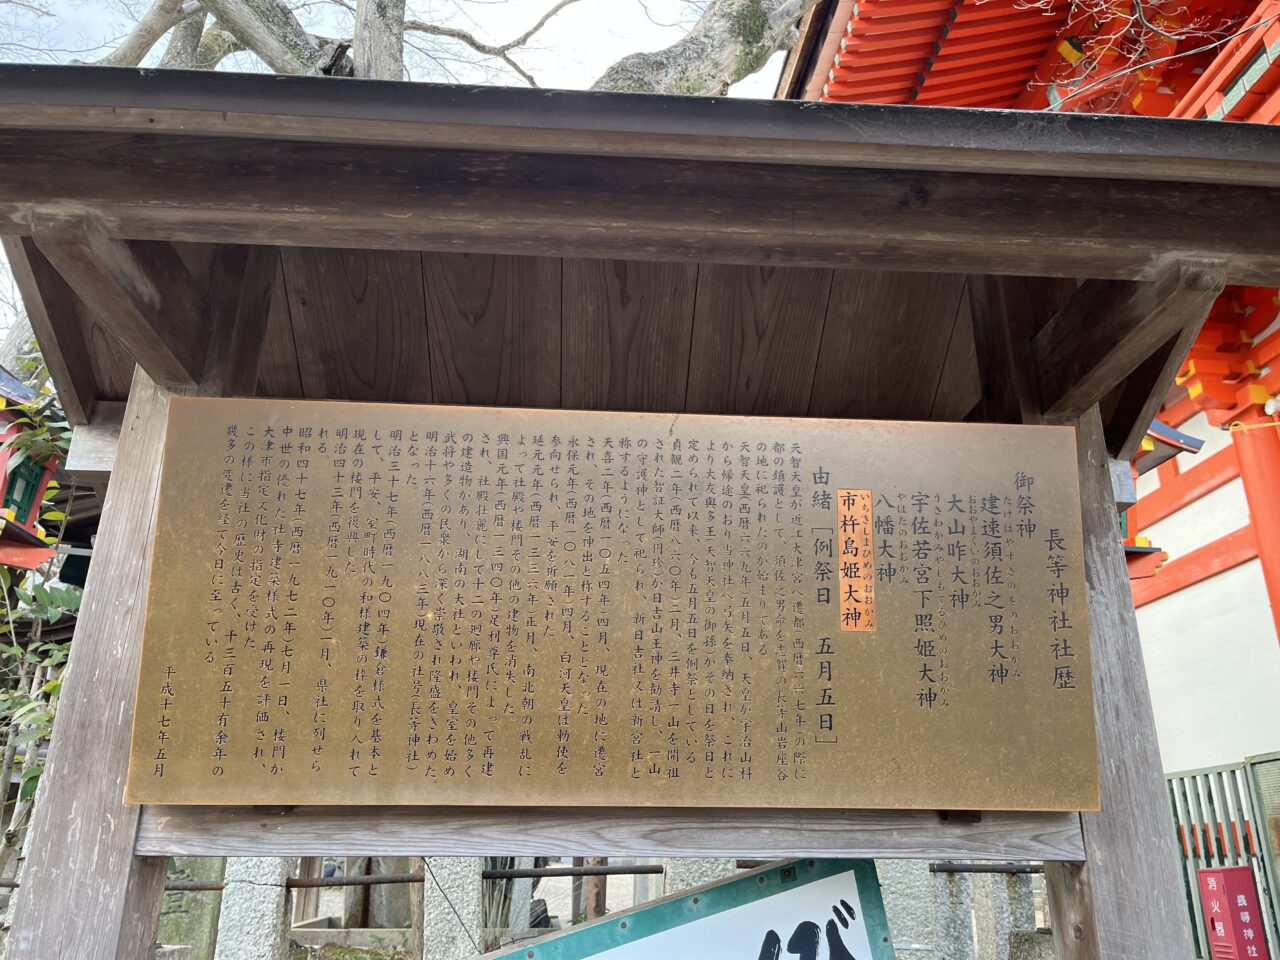 長等神社社歴
御祭神
たけはやすさのをのおおかみ
建速須佐之男大神
おおやまくいのおおかみ
大山咋大神
うさわかみやしたてるひめのおおかみ
宇佐若宮下照姫大神
やはたのおおかみ
八幡大神
いちきしまひめのおおかみ
市杵島姫大神
由緒「例祭日 五月五日」
天智天皇が近江大津宮へ遷都(西暦六六七年)の際に
都の鎮護として、須佐之男命を志賀の長等山岩座谷
の地に祀られたのが始まりである。
天智天皇(西暦六六九年)五月五日、天皇が宇治山科
から帰途のおり当神社へ弓矢を奉納され、これに
より大友與多王(天智天皇の御孫)がその日を祭日と
定められて以来、今も五月五日を例祭としている。
貞観二年(西暦八六〇年)二月、三井寺一山を開祖
された智証大師(円珍)が日吉山王神を勧請し、一山
の守護神として祀られ、新日吉社又は新宮社と
称するようになった。
天喜二年(西暦一〇五四年)四月、現在の地に遷宮
され、その地を神出と称することとなった。
永保元年(西暦一〇八一年)四月、白河天皇は勅使を
参向せられ、平安を祈願された。
延元元年(西暦一三三六年)正月、南北朝の戦乱に
よって社殿や楼門その他の建物を消失した
興国元年(西暦一三四〇年)足利尊氏によって再建
され、社殿壮麗にして十二の廻廊や楼門その他多く
の建造物があり、湖南の大社といわれ、皇室を始め
武将や多くの民衆から深く崇敬され隆盛をきわめた。
明治十六年(西暦一八八三年)現在の社号(長等神社)
となった。
明治三十七年(西暦一九〇四年)鎌倉様式を基本と
して、平安、室町時代の和様建築の粋を取り入れて
現在の楼門を後興した。
明治四十三年(西暦一九一〇年)一月、県社に列せら
れる。
昭和四十七年(西暦一九七二年)七月一日、楼門が
中世の優れた社寺建築様式の再現を評価され、
大津市指定文化財の指定を受けた。
この様に当社の歴史は古く、千三百五十有余年の
幾多の変遷を経て今日に至っている。
平成十七年五月
び
消火器
長等神社